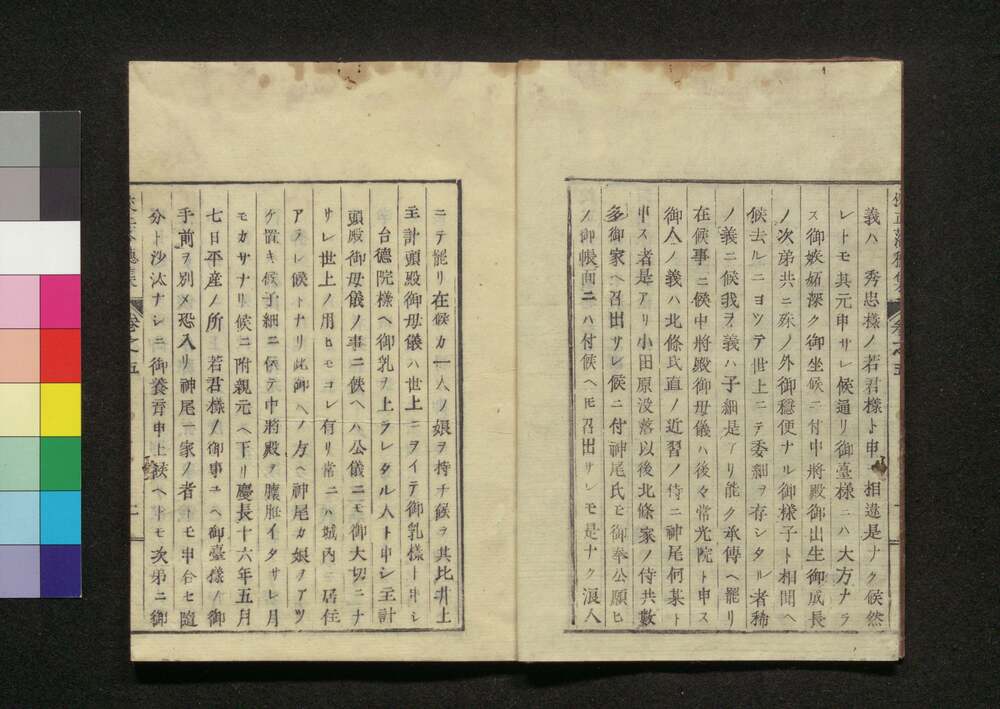 義ハ 秀忠樣ノ若君樣ト申ニ相違是ナク候然
レトモ其元申サレ候通リ御臺樣ニハ大方ナラ
ス御嫉妬深ク御坐候ニ付中將殿御出生御成長
ノ次第共ニ殊ノ外御穩便ナル御樣子ト相聞ヘ
候去ルニヨツテ世上ニテ委細ヲ存シタル者稀
ノ義ニ候我ヲ義ハ子細是アリ能ク承傳ヘ罷リ
在候事ニ候中將殿御母儀ハ後々常光院ト申ス
御人ノ義ハ北條氏直ノ近習ノ侍ニ神尾何某ト
申ス者是アリ小田原沒落以後北條家ノ侍共數
多御家ヘ召出サレ候ニ付神尾氏モ御奉公願ヒ
ノ御帳面ニハ付候ヘ𪜈召出サレモ是ナク浪人
ニテ罷リ在候カ一人ノ娘ヲ持チ候ヲ其比井上
主計頭殿御母儀ハ世上ニヲイテ御乳樣ト申シ
台德院樣ヘ御乳ヲ上ラレタル人ト申シ主計
頭殿御母儀ノ事ニ候ヘハ公儀ニモ御大切ニナ
サレ世上ノ用ヒモコレ有リ常ニハ城內ニ居住
アラレ候トナリ此御人ノ方ヘ神尾カ娘ヲアツ
ケ置キ候子細ニ依テ中將殿ヲ懷胎イタサレ月
モカサナリ候ニ附親元ヘ下リ慶長十六年五月
七日平產ノ所 若君樣ノ御事ユヘ御臺樣ノ御
手前ヲ別メ恐入リ神尾一家ノ者トモ申合セ隨
分ト沙汰ナシニ御養育申上候ヘトモ次第ニ御
卷之五